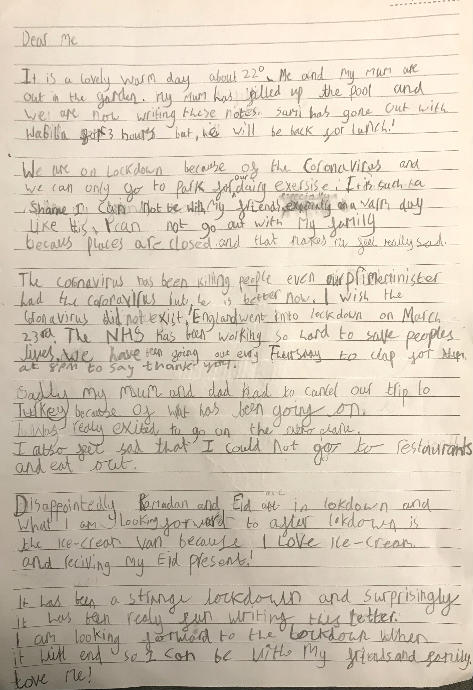 Dear Me
It is a lovely warm day about 22°. Me and my mum are
out in the garden. My mum has filled up the pool and
we are now writing these notes. Sami has gone out with
Habilla for 3 hours but, he will be back for lunch!
We are on Lockdown because of the Coronavirus and
we can only go to park for our daily exersise. It is such a
Shame I can not be with my friends, especially on a warm day
like this, I can not go out with my family
becaus places are closed and that makes me feel really sad.
The coronavirus has been killing people even our primeminister
had the coronavirus but, he is better now. I wish the
Coronavirus did not exist, England went into lockdown on March
23rd. The NHS has been working so hard to save peoples
lives. We have been going out every Thursday to clap for them
at 8pm to say thank you.
Sadly my mum and dad had to cancel our trip to
Turkey because of what has been going on.
I was realy exited to go on the plane.
I also feel sad that I could not go to restaurants
and eat out.
Disappointedly Ramadan and Eid are in lokdown and
what I am looking forward to after lokdown is
the ice-cream van because I Love ice-cream
and reciving my Eid present!
It has been a strange lockdown and surprisingly
it has been realy fun writing this letter.
I am looking forward to the Lockdown when
it will end so I can be with my friends and family.
Love me!